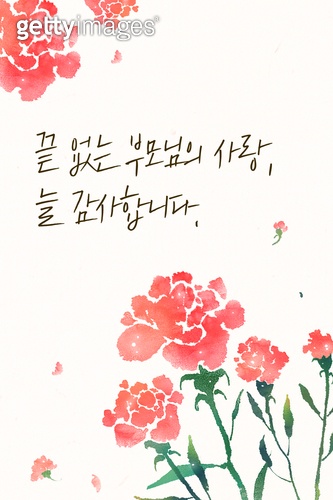 gettyimages®
끝 없는 부모님의 사랑,
늘 감사합니다.